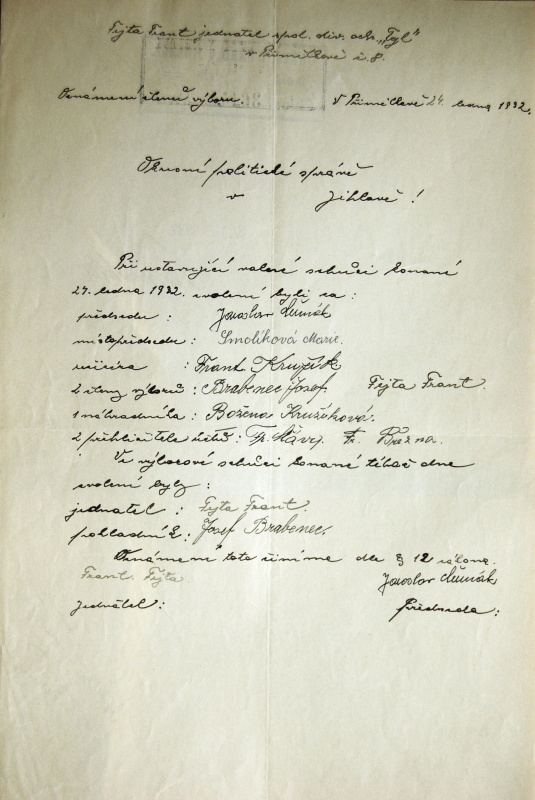 Fejta Frant jednatel spol. div. och. „Tyl"
v Přímělkově č. 8.
Oznámení členů výboru. V Přímělkově 24. ledna 1932.
Okresní politické správě
v Jihlavě!
Při ustavující valné schůzi konané
24. ledna 1932. zvoleni byli za:
předsedu: Jaroslav
místopředsedu: Smolíková Marie.
: Frant
2 členy výboru: Brabenec Josef. Fejta Frant.
1 náhradníka: Božena
2 přehližitele účtů: Fr. Fr.
Ve výborové schůzi konané téhož dne
zvoleni byly:
jednatel: Fejta Frant.
pokladník: Josef Brabenec.
Oznámení toto činíme dle § 12 zákona.
Frant. Fejta Jaroslav
Jednatel: Předseda: